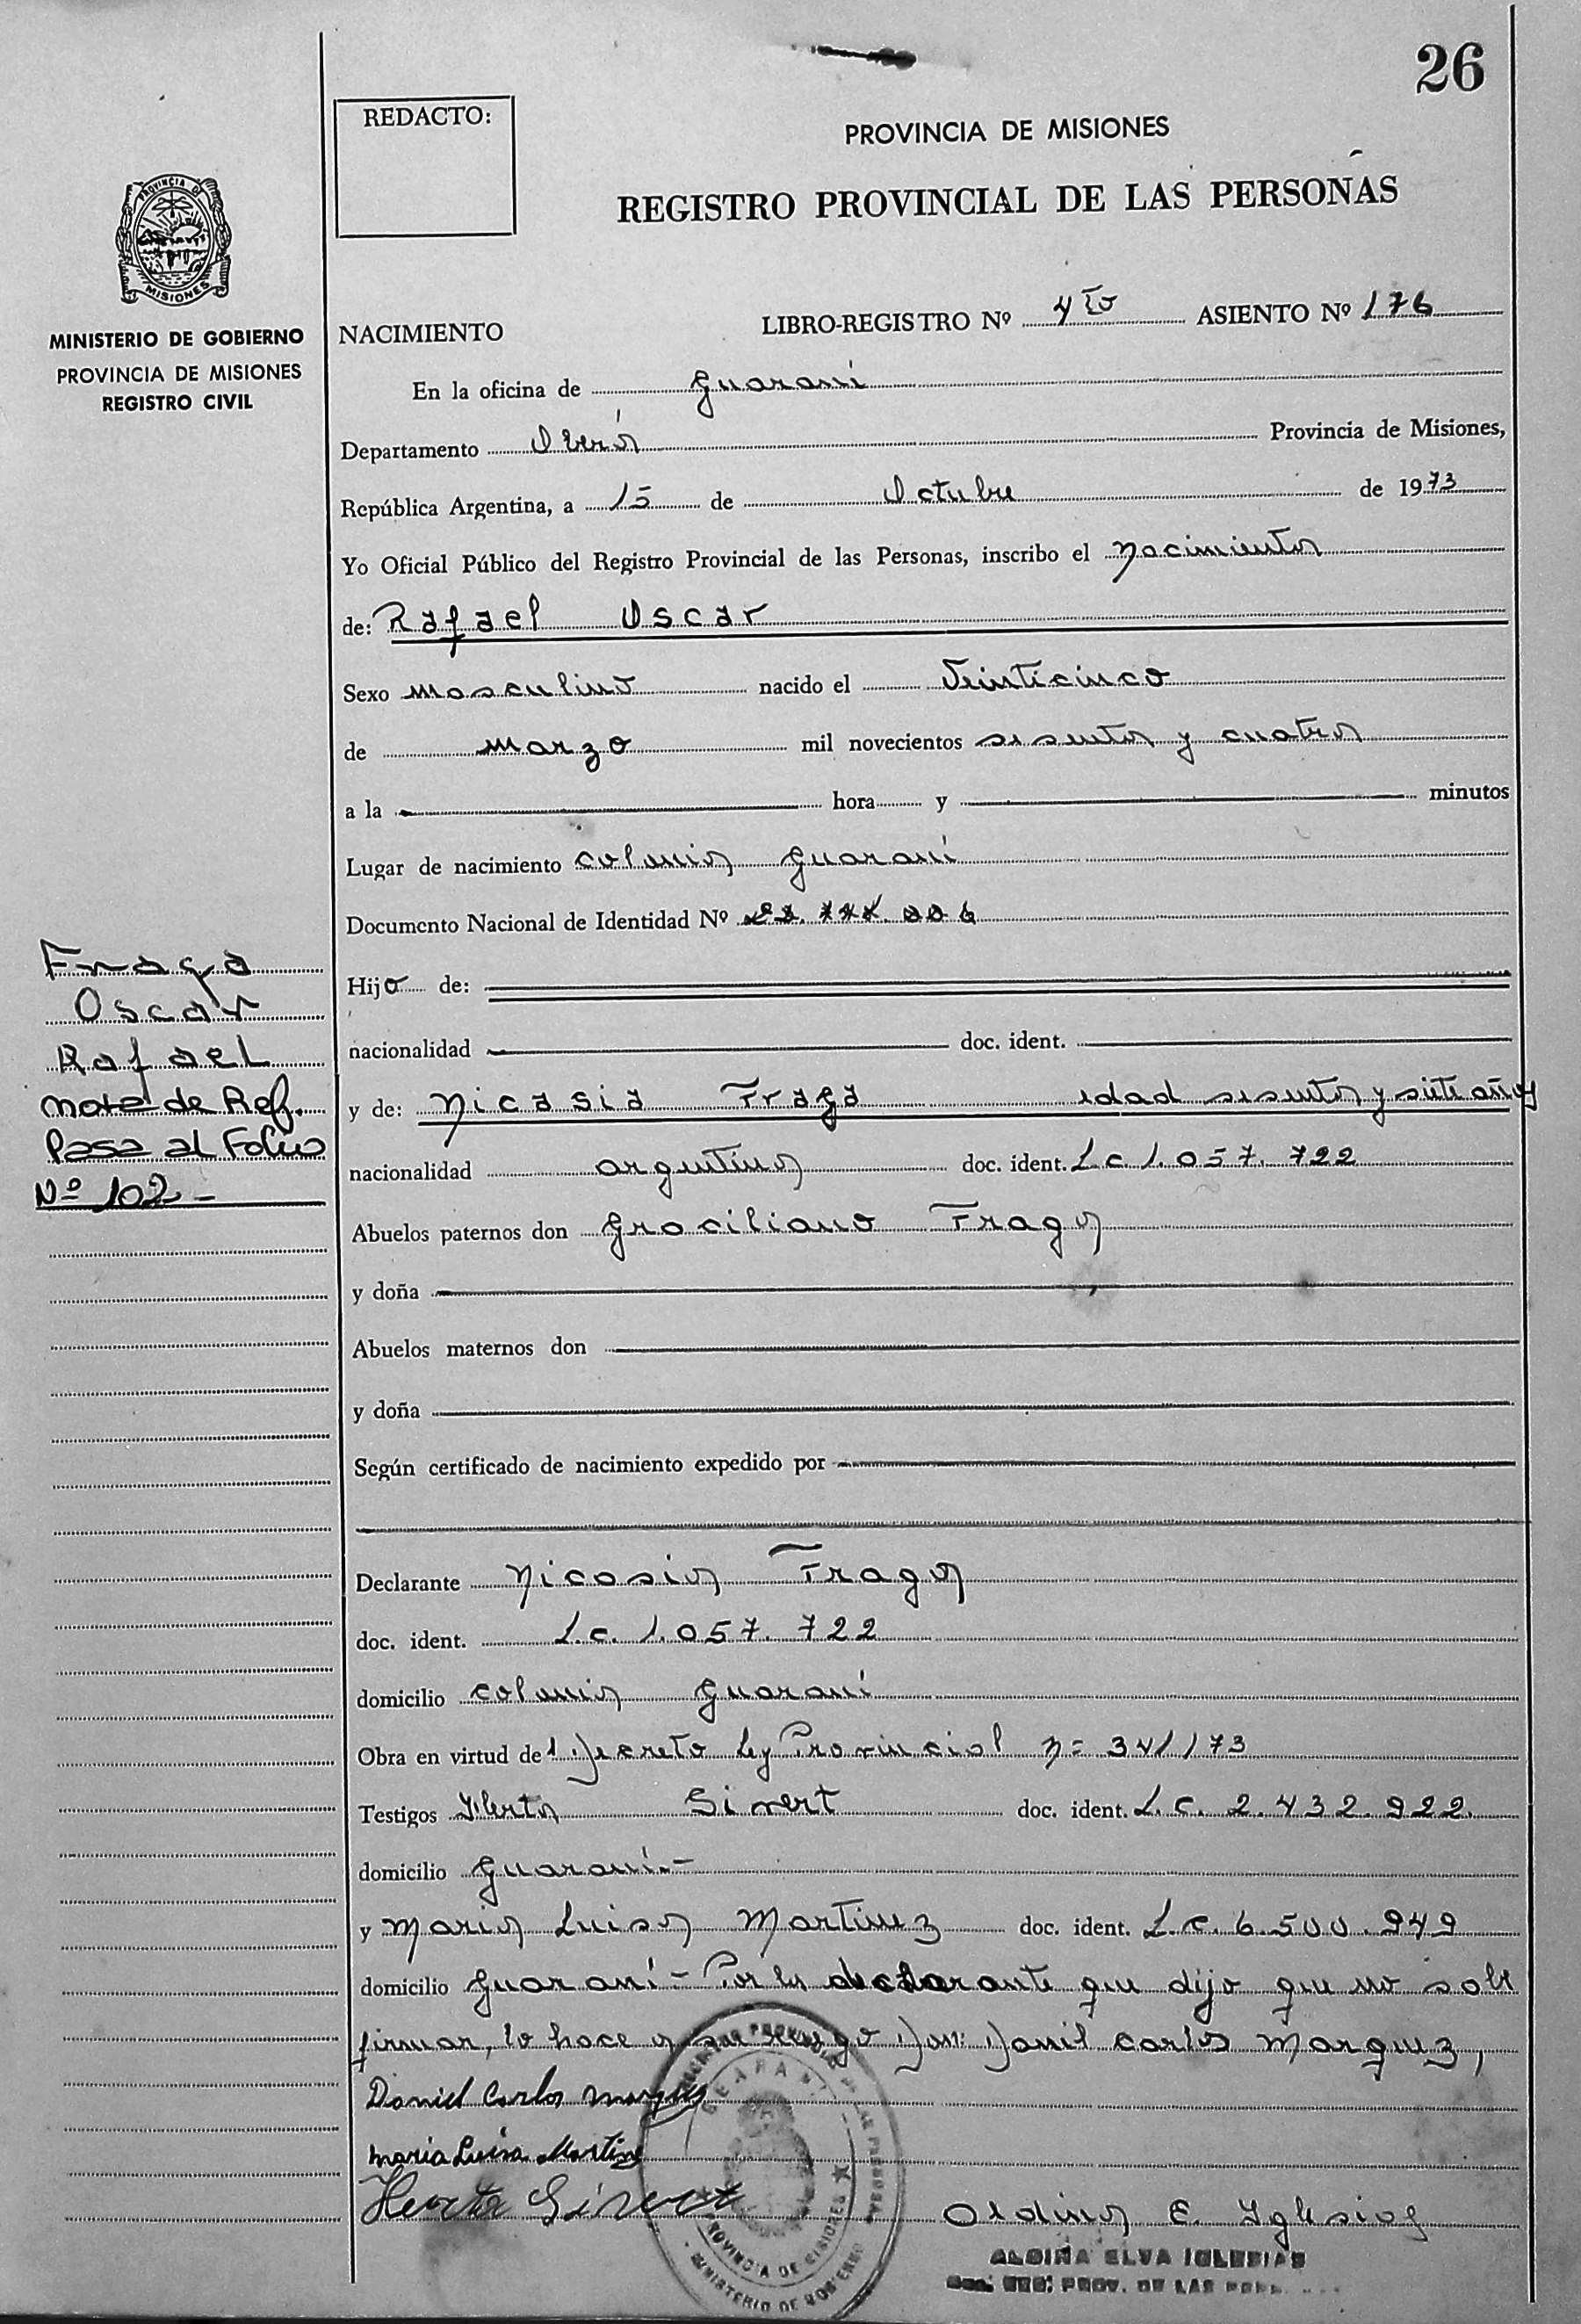 26
REDACTO:
PROVINCIA DE MISIONES
REGISTRO PROVINCIAL DE LAS PERSONAS
PROVINCIA DE
MISIONES
MINISTERIO DE GOBIERNO
PROVINCIA DE MISIONES
REGISTRO CIVIL
NACIMIENTO LIBRO-REGISTRO Nº 4to ASIENTO Nº 176
En la oficina de Guaraní
Departamento Oberá Provincia de Misiones,
República Argentina, a 15 de Octubre de 1973
Yo Oficial Público del Registro Provincial de las Personas, inscribo el nacimiento
de: Rafael Oscar
Sexo masculino nacido el Veinticinco
de marzo mil novecientos sesenta y cuatro
a la hora y minutos
Lugar de nacimiento colonia Guaraní
Documento Nacional de Identidad Nº
Hijo de:
nacionalidad doc. ident.
y de: Nicasia Fraga edad sesenta y siete años
nacionalidad argentina doc. ident. L.c. 1.057.722
Abuelos paternos don Graciliano Fraga
y doña
Abuelos maternos don
y doña
Según certificado de nacimiento expedido por
Declarante Nicasia Fraga
doc. ident. L.c. 1.057.722
domicilio colonia Guaraní
Obra en virtud del Decreto Ley Provincial n= 341/73
Testigos Herta Sivert doc. ident. L.c. 2.432.922.
domicilio Guaraní.-
y Maria Luisa Martinez doc. ident. L.c. 6.500.949
domicilio Guaraní - Por la declarante que dijo que no sabe
firmar, lo hace a su ruego Don: Daniel Carlos Marquez,
Daniel Carlos Marquez
Maria Luisa Martinez
Herta Sivert
Aldina E. Iglesias
ALDINA ELVA IGLESIAS
PROV. DE LAS
GUARANI
PROVINCIA DE MISIONES
MINISTERIO DE GOBIERNO
Fraga
Oscar
Rafael
nota de Ref.
Pasa al Folio
Nº 102-